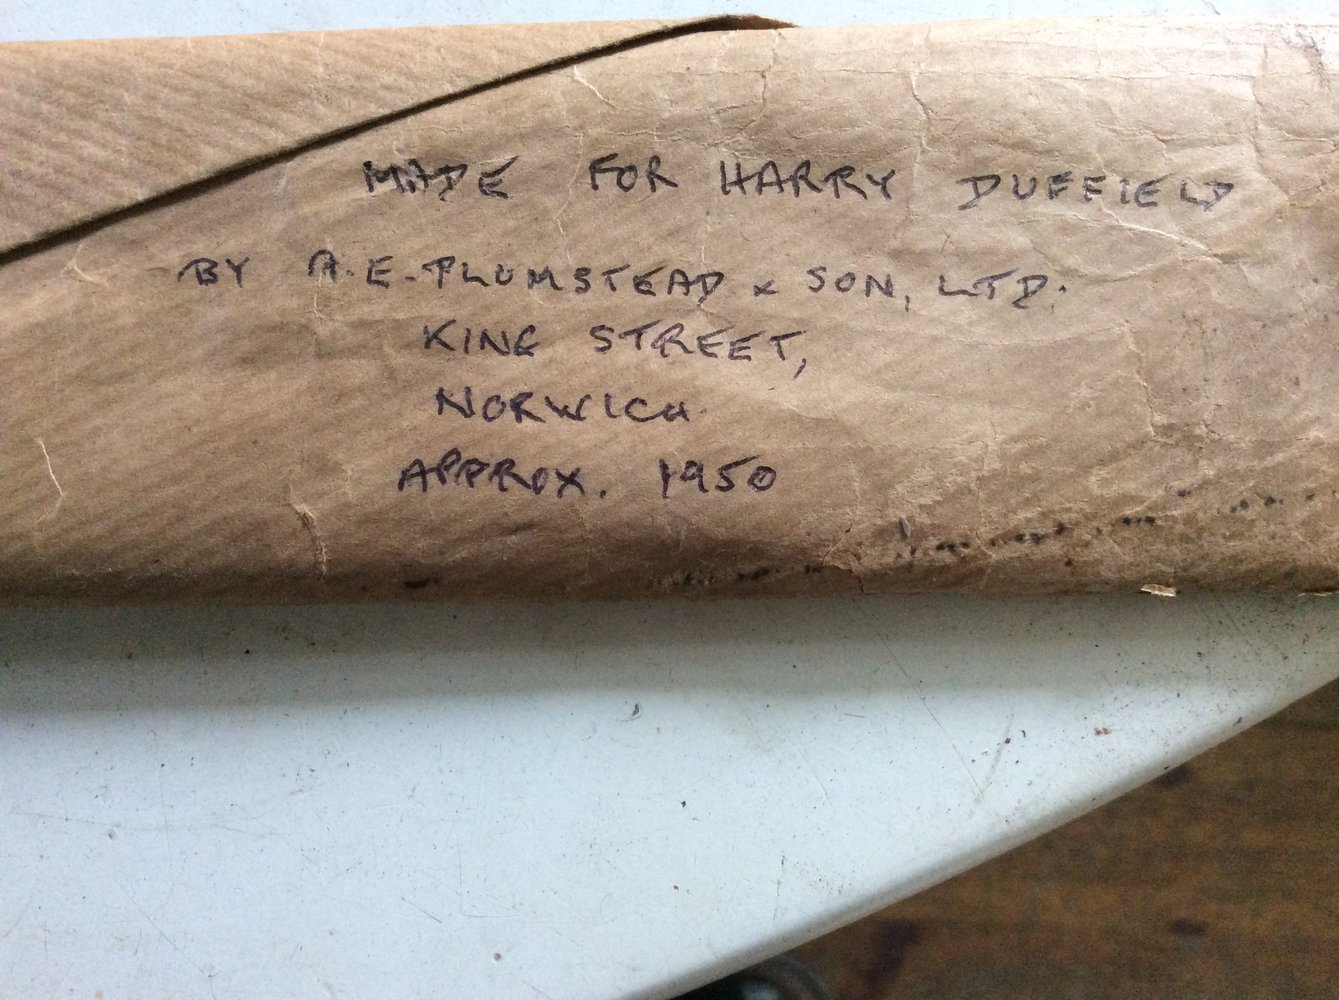 MADE FOR HARRY DUFFIELD
BY A.E. PLUMSTEAD & SON, LTD.
KING STREET,
NORWICH.
APPROX. 1950